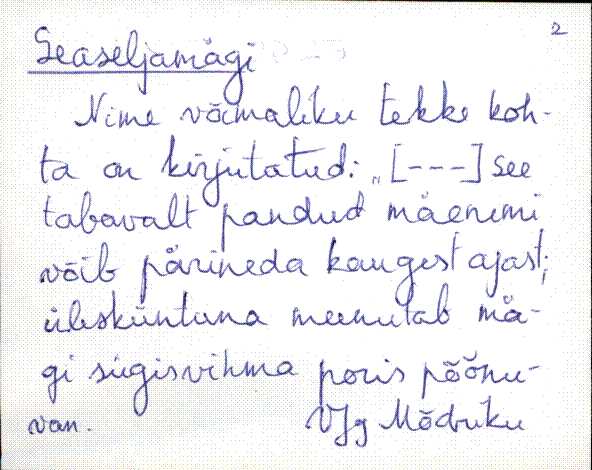 2
Seaseljamägi
Nime võimaliku tekke koh-
ta on kirjutatud: „[---] see
tabavalt pandud mäenimi
võib pärineda kaugest ajast;
üksküntuna meenutab mä-
gi sügisvihma poris põõnu-
van. VJg Mõdriku